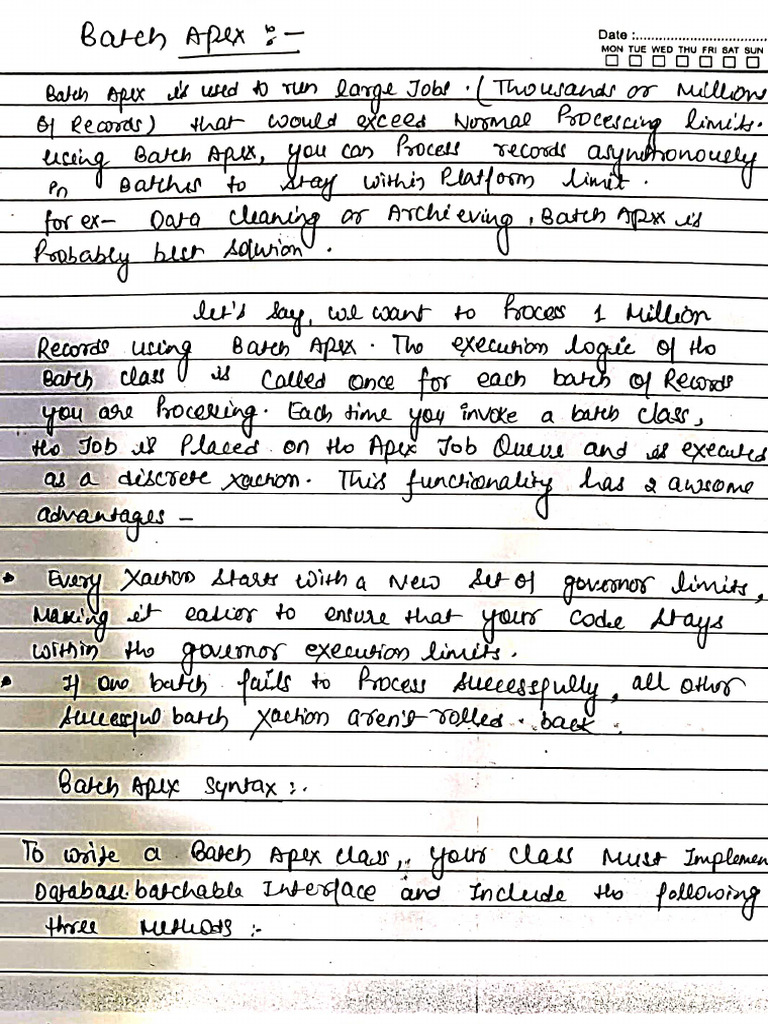 Batch Apex :-
Date :
MON TUE WED THU FRI SAT SUN
Batch Apex is used to run large Jobs. (Thousands or Million
Of Records) that would exceed Normal Processing limits.
using Batch Apex, you can Process records asynchronously
in Batches to stay within Platform limit.
for ex- Data cleaning or Archieving, Batch Apex is
Probably best solution.
let's say, we want to Process 1 Million
Records using Batch Apex. The execution logic of the
Batch class is called once for each batch of Records
you are Processing. Each time you invoke a batch class,
the Job is Placed on the Apex Job Queue and is executed
as a discrete xaction. This functionality has 2 awsome
advantages -
• Every Xaction starts with a New set of governor limits,
Making it easier to ensure that your code stays
within the governor execution limits.
• If one batch fails to Process successfully, all other
successful batch xaction aren't rolled. back.
Batch Apex syntax :.
To write a Batch Apex class, your class Must Implemen
Database.batchable Interface and Include the following
three Methods :-